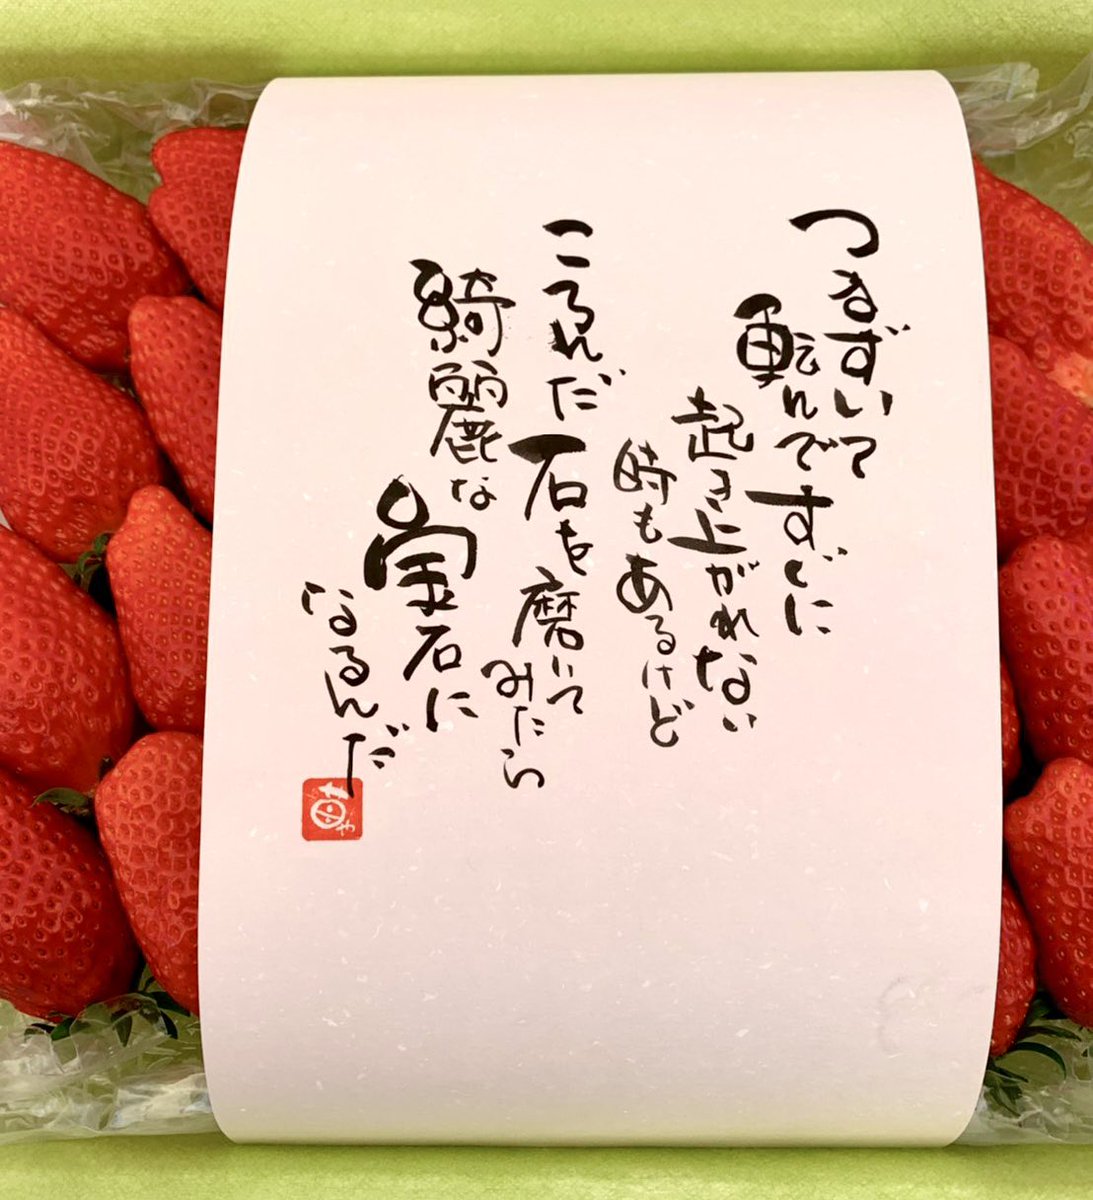 つまずいて
転んですぐに
起き上がれない
時もあるけど
ころんだ石を磨いて
みたら
綺麗な
宝石に
なるんだ